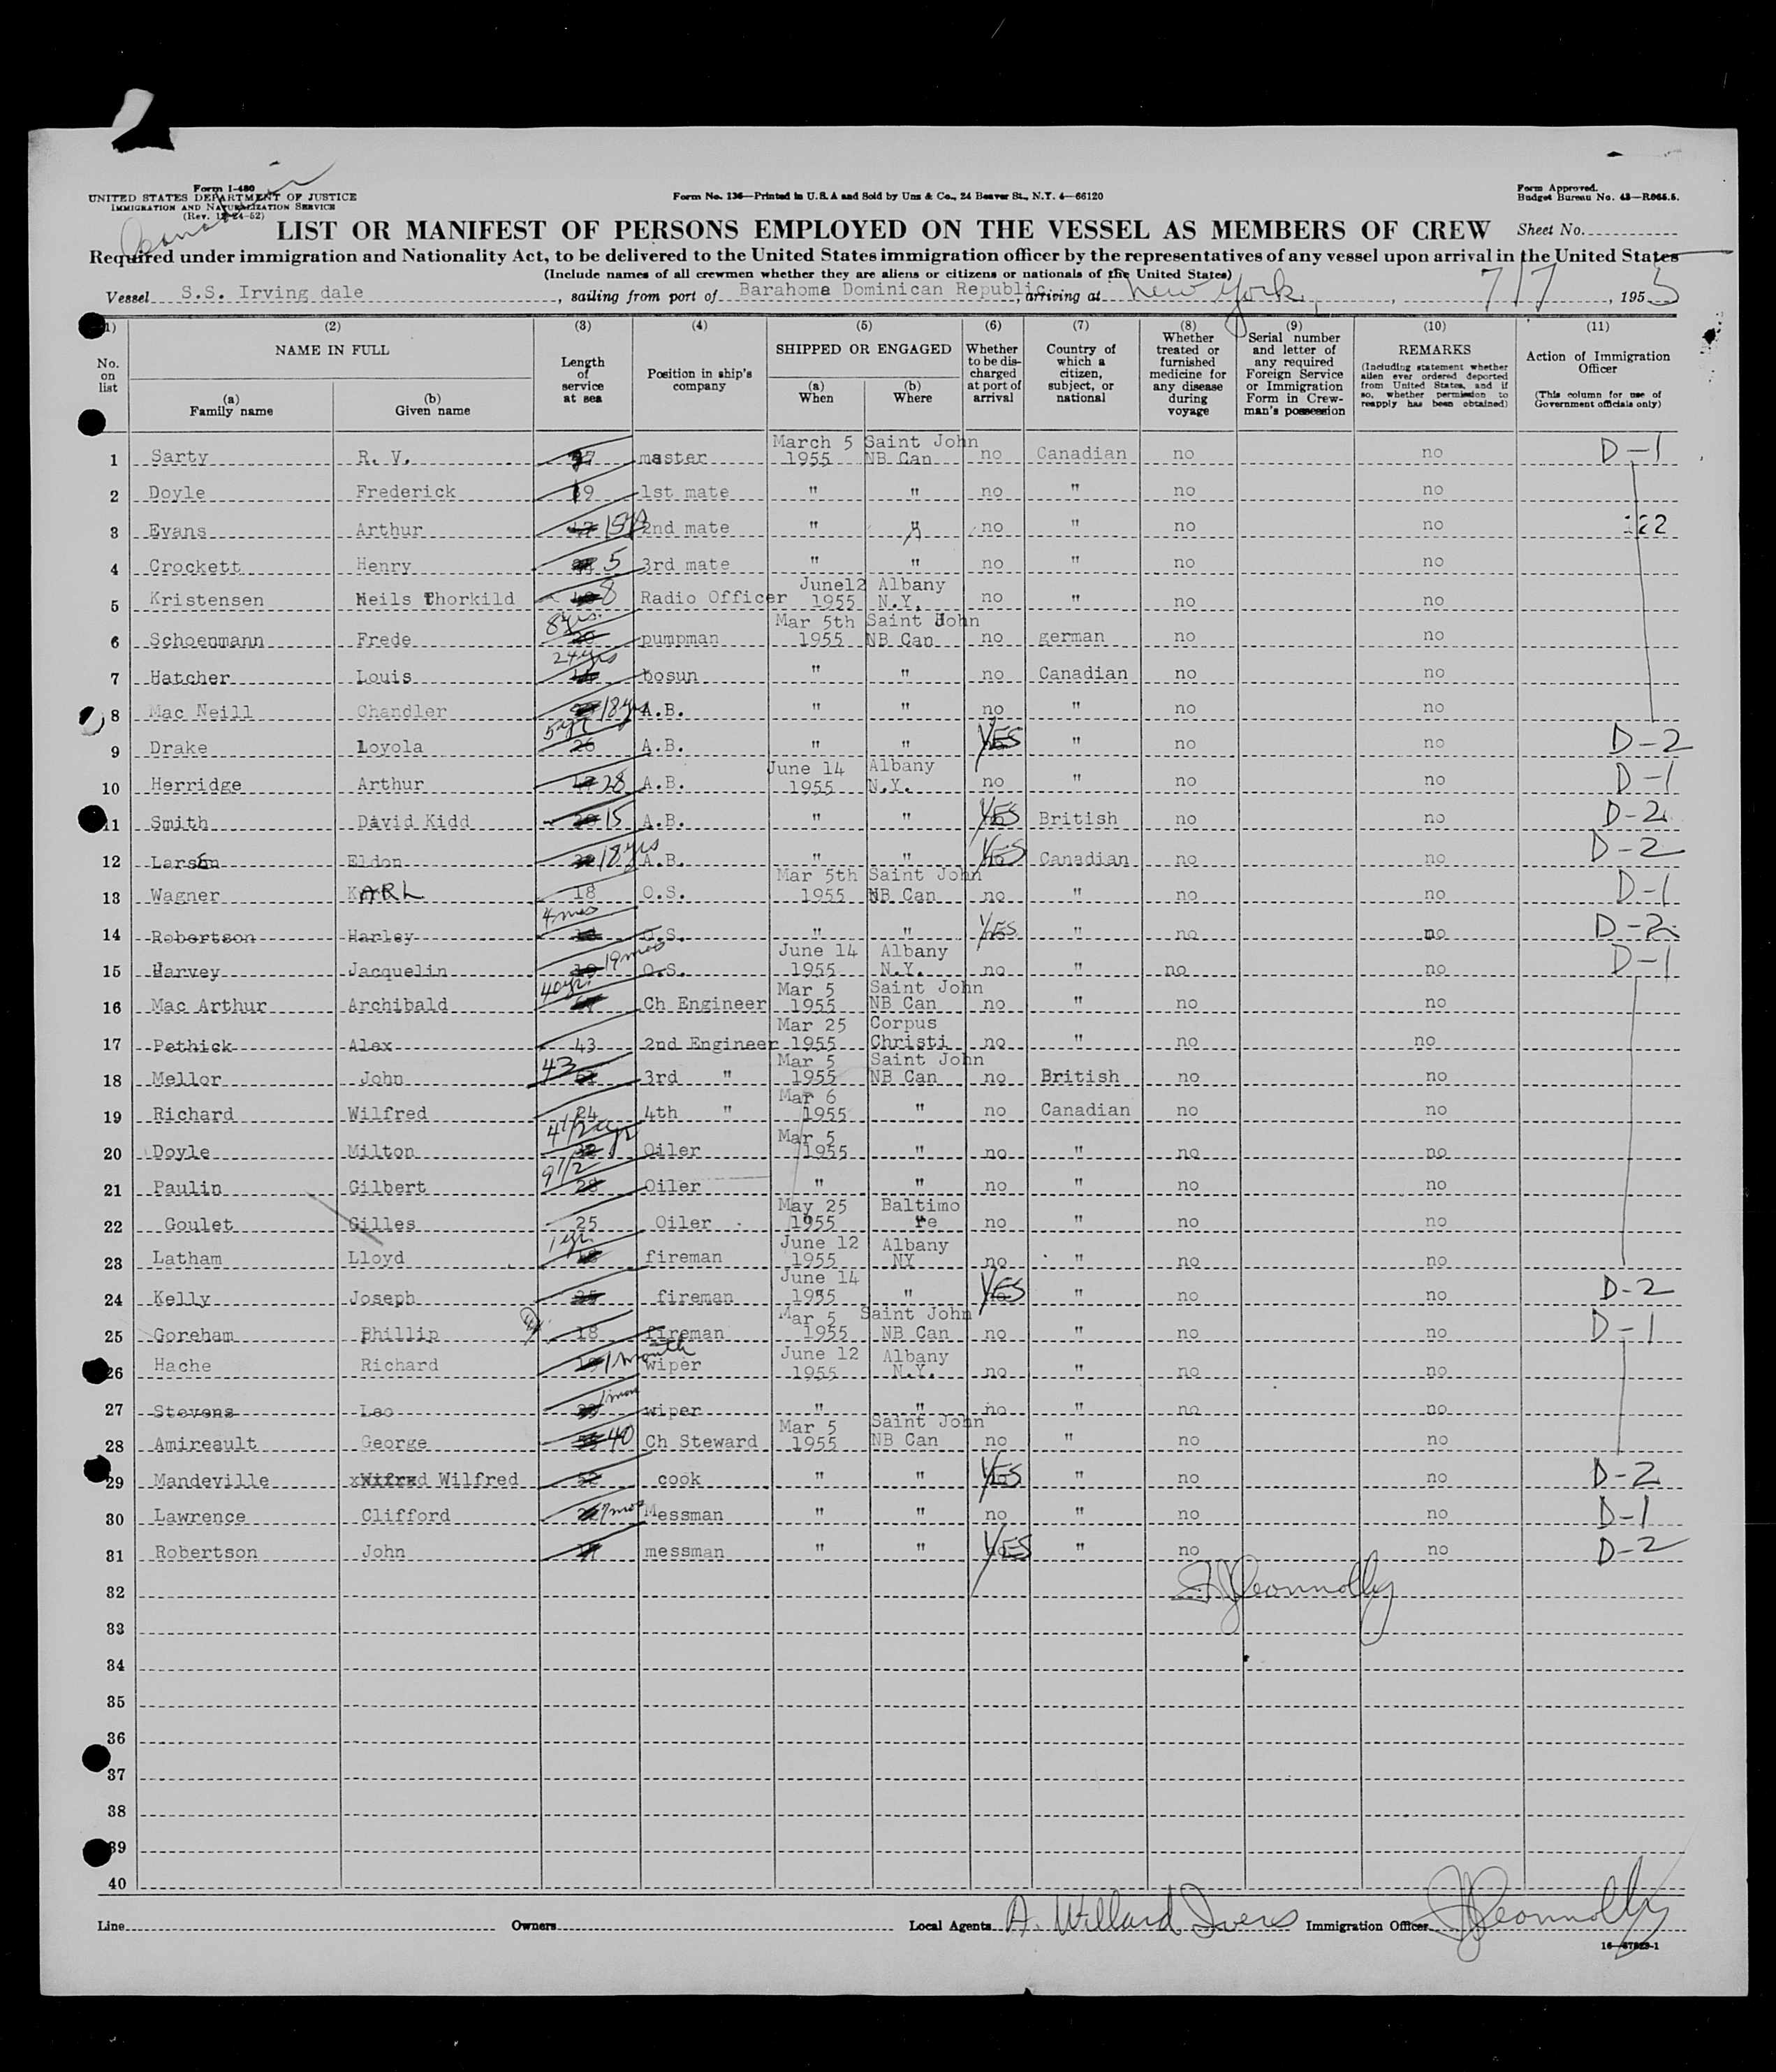 Form I-480
UNITED STATES DEPARTMENT OF JUSTICE
IMMIGRATION AND NATURALIZATION SERVICE
Form No. 136—Printed in U.S.A and Sold by Uns & Co., 24 Beaver St., N.Y. 4—66120
Form Approved.
Budget Bureau No. 43—R065.5.
LIST OR MANIFEST OF PERSONS EMPLOYED ON THE VESSEL AS MEMBERS OF CREW Sheet No.
Required under immigration and Nationality Act, to be delivered to the United States immigration officer by the representatives of any vessel upon arrival in the United States
(Include names of all crewmen whether they are aliens or citizens or nationals of the United States)
Vessel S.S. Irving dale, sailing from port of Barahome Dominican Republic, arriving at New York, 7/7, 1955
(1) (2) (3) (4) (5) (6) (7) (8) (9) (10) (11)
No. on list
NAME IN FULL
(a) Family name
(b) Given name
Length of service at sea
Position in ship's company
SHIPPED OR ENGAGED
(a) When
(b) Where
Whether to be discharged at port of arrival
Country of which a citizen, subject, or national
Whether treated or furnished medicine for any disease during voyage
Serial number and letter of any required Foreign Service or Immigration Form in Crewman's possession
REMARKS
(Including statement whether alien ever ordered deported from United States, and if so, whether permission to reapply has been obtained)
Action of Immigration Officer
(This column for use of Government officials only)
1 Sarty R. V. master March 5 1955 Saint John NB Can no Canadian no no D-1
2 Doyle Frederick 19 1st mate " " no " no no
3 Evans Arthur 2nd mate " " no " no no 122
4 Crockett Henry 5 3rd mate " " no " no no
5 Kristensen Neils Thorkild 8 Radio Officer June12 1955 Albany N.Y. no " no no
6 Schoenmann Frede 8 yrs. pumpman Mar 5th 1955 Saint John NB Can no german no no
7 Hatcher Louis 24 yrs bosun " " no Canadian no no
8 Mac Neill Chandler 18 yrs A.B. " " no " no no
9 Drake Loyola 5 yr 26 A.B. " " YES " no no D-2
10 Herridge Arthur 28 A.B. June 14 1955 Albany N.Y. no " no no D-1
11 Smith David Kidd 15 A.B. " " YES British no no D-2
12 Larsen Eldon 18 yrs A.B. " " YES Canadian no no D-2
13 Wagner KARL 18 O.S. Mar 5th 1955 Saint John NB Can no " no no D-1
14 Robertson Harley 4 mos O.S. " " YES " no no D-2
15 Harvey Jacquelin 19 mos O.S. June 14 1955 Albany N.Y. no " no no D-1
16 Mac Arthur Archibald 40 yrs Ch Engineer Mar 5 1955 Saint John NB Can no " no no
17 Pethick Alex 43 2nd Engineer Mar 25 1955 Corpus Christi no " no no
18 Mellor John 43 3rd " Mar 5 1955 Saint John NB Can no British no no
19 Richard Wilfred 24 4th " Mar 6 1955 " no Canadian no no
20 Doyle Milton 4 1/2 Oiler Mar 5 1955 " no " no no
21 Paulin Gilbert 9 1/2 28 Oiler " " no " no no
22 Goulet Gilles 25 Oiler May 25 1955 Baltimore no " no no
23 Latham Lloyd 1 yr. fireman June 12 1955 Albany NY no " no no
24 Kelly Joseph 25 fireman June 14 1955 " YES " no no D-2
25 Goreham Phillip 18 fireman Mar 5 1955 Saint John NB Can no " no no D-1
26 Hache Richard 1 month wiper June 12 1955 Albany N.Y. no " no no
27 Stevens Leo 1 mon wiper " " no " no no
28 Amireault George 40 Ch Steward Mar 5 1955 Saint John NB Can no " no no
29 Mandeville Wilfred 52 cook " " YES " no no D-2
30 Lawrence Clifford 7 mos Messman " " no " no no D-1
31 Robertson John messman " " YES " no no D-2
32 Connolly
33
34
35
36
37
38
39
40
Line Owners Local Agents A. Willard Ivers Immigration Officer Connolly